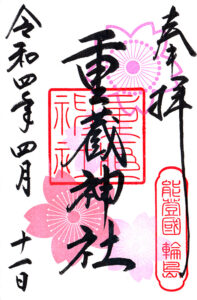 奉拝
能登國 輪島
重蔵神社
令和四年四月十一日